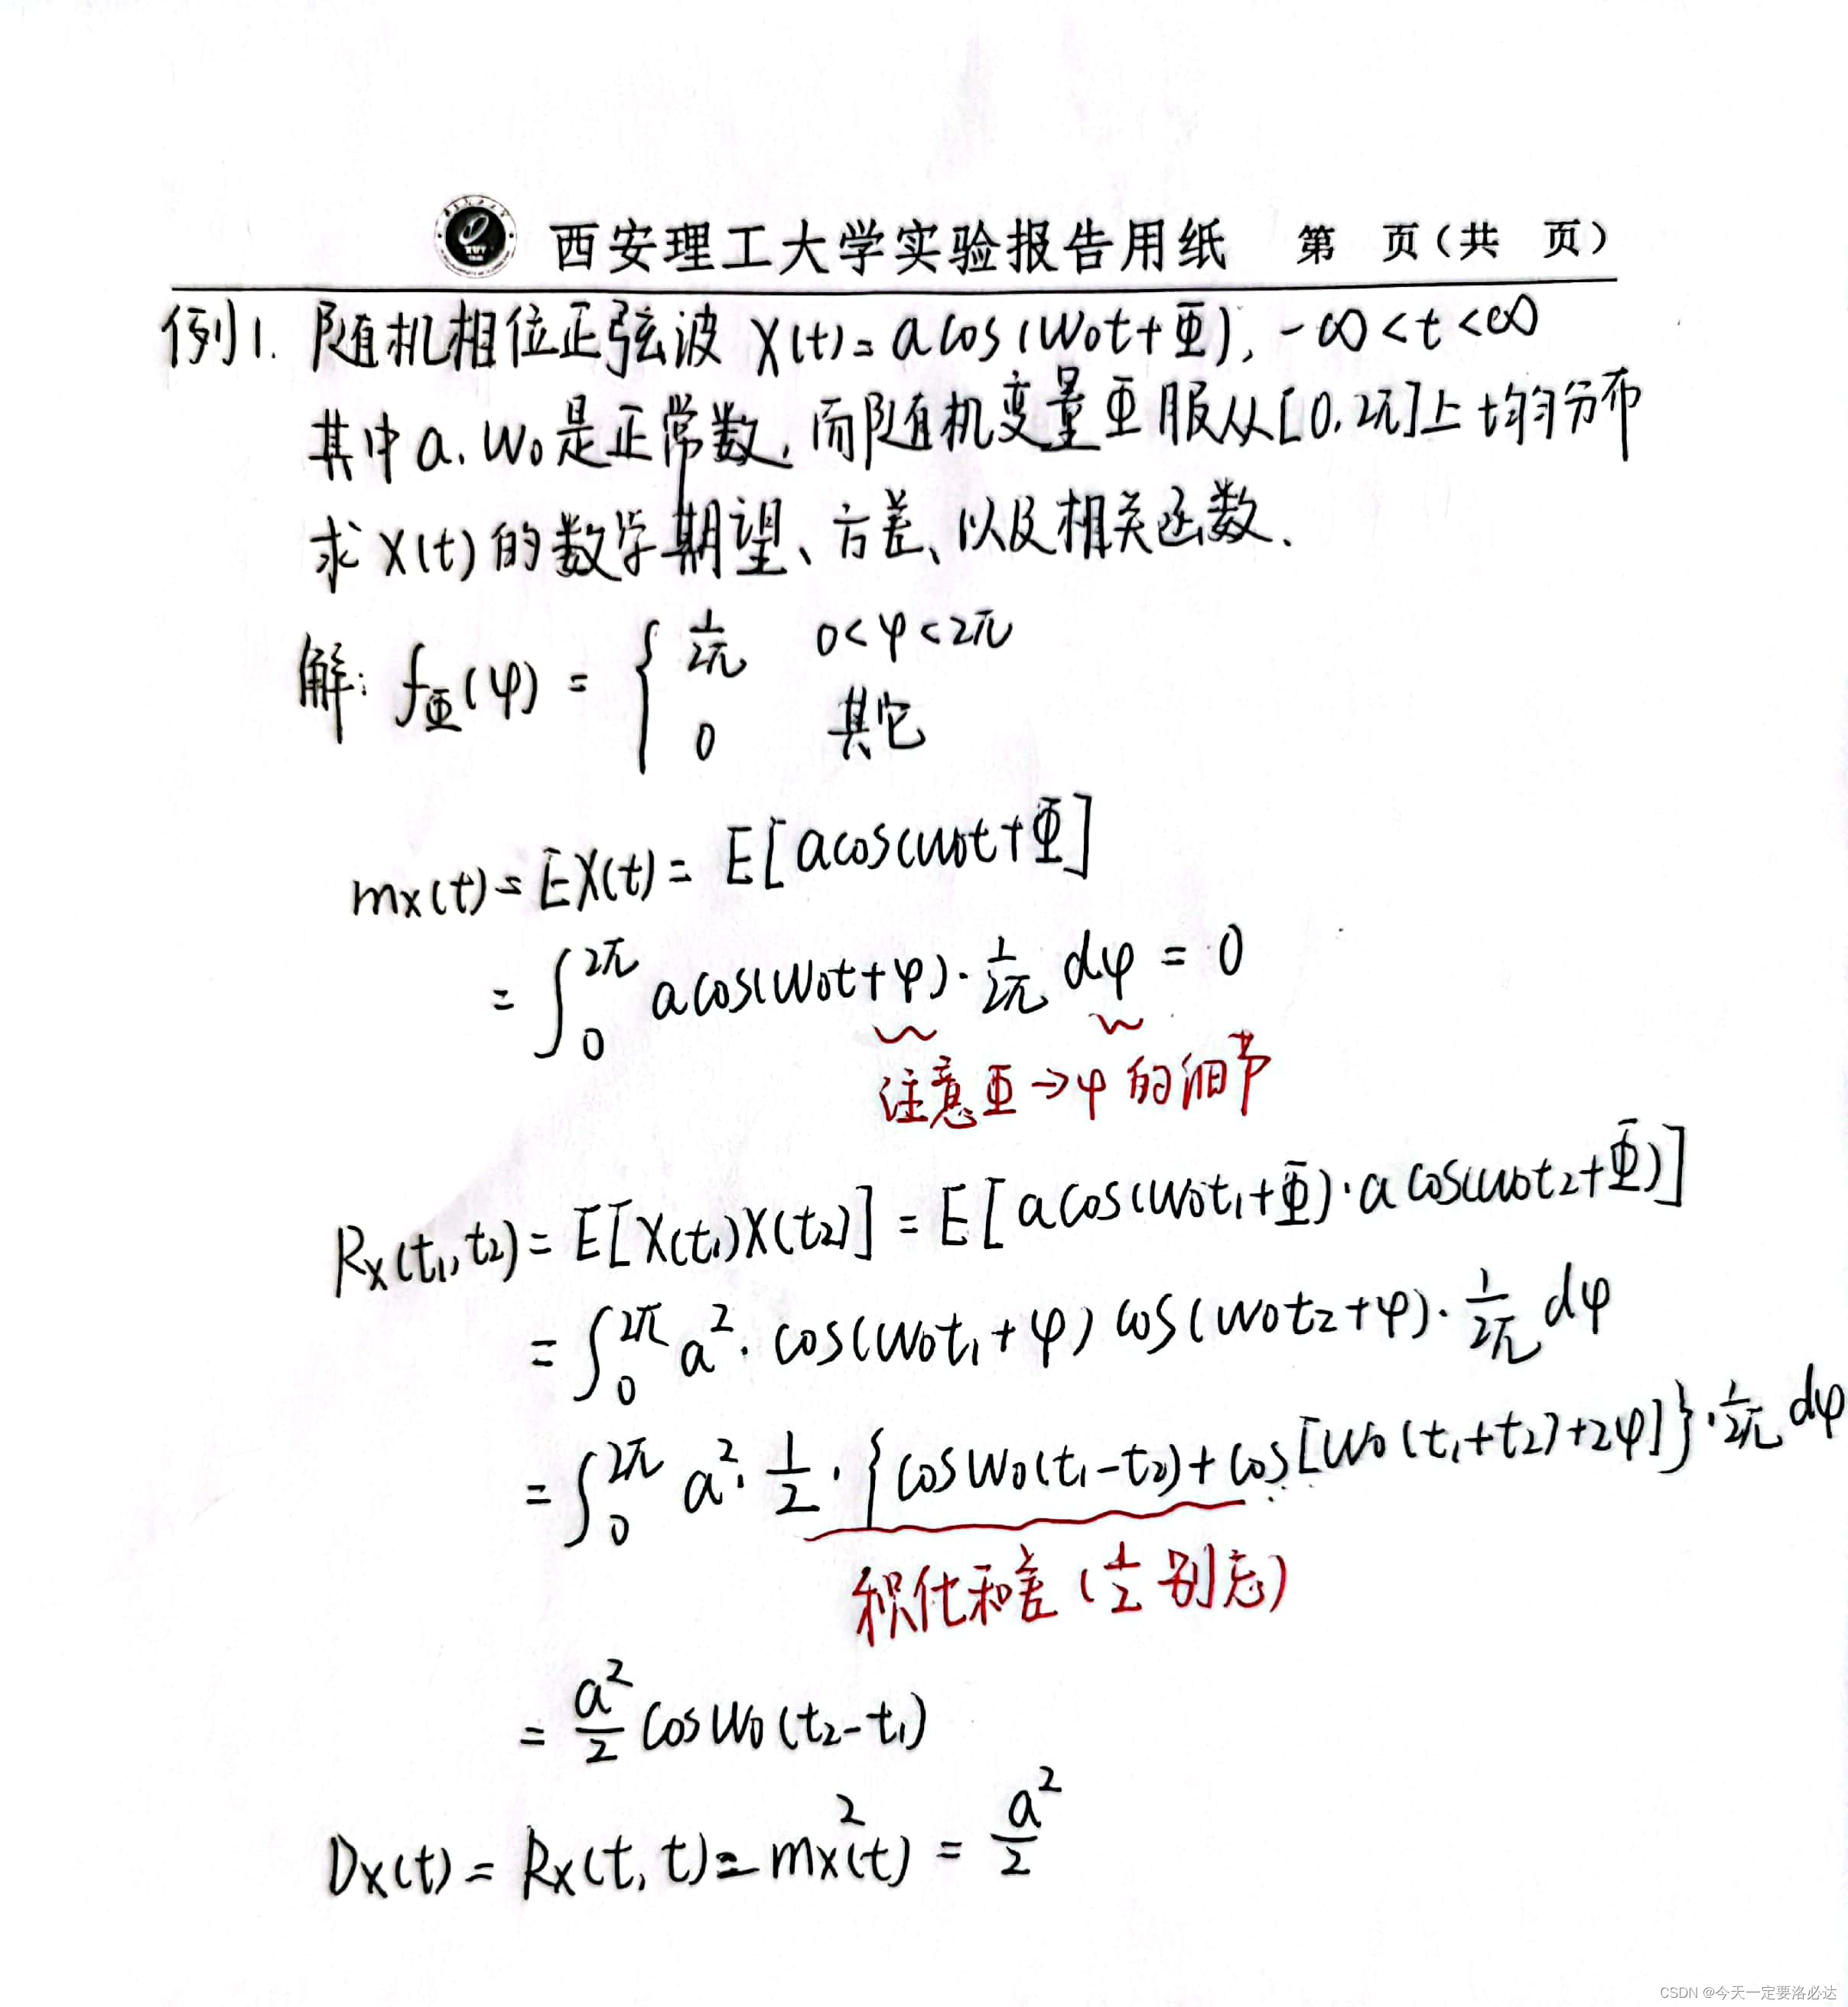 西安理工大学实验报告用纸 第 页(共 页)
例1. 随机相位正弦波 X(t)=acos(W₀t+Φ), -∞<t<∞
其中a, W₀是正常数, 而随机变量Φ服从[0, 2π]上均匀分布
求X(t)的数学期望、方差、以及相关函数.
解: f_Φ(φ) = { 1/2π 0<φ<2π
0 其它
m_X(t) = EX(t) = E[acos(W₀t+Φ]
= ∫₀^{2π} acos(W₀t+φ)·1/2π dφ = 0
注意Φ→φ的细节
R_X(t₁,t₂) = E[X(t₁)X(t₂)] = E[acos(W₀t₁+Φ)·acos(W₀t₂+Φ)]
= ∫₀^{2π} a²·cos(W₀t₁+φ)cos(W₀t₂+φ)·1/2π dφ
= ∫₀^{2π} a²·1/2·{cosW₀(t₁-t₂)+cos[W₀(t₁+t₂)+2φ]}·1/2π dφ
积化和差(1/2别忘)
= a²/2 cosW₀(t₂-t₁)
D_X(t) = R_X(t, t) - m_X²(t) = a²/2
CSDN @今天一定要洛必达